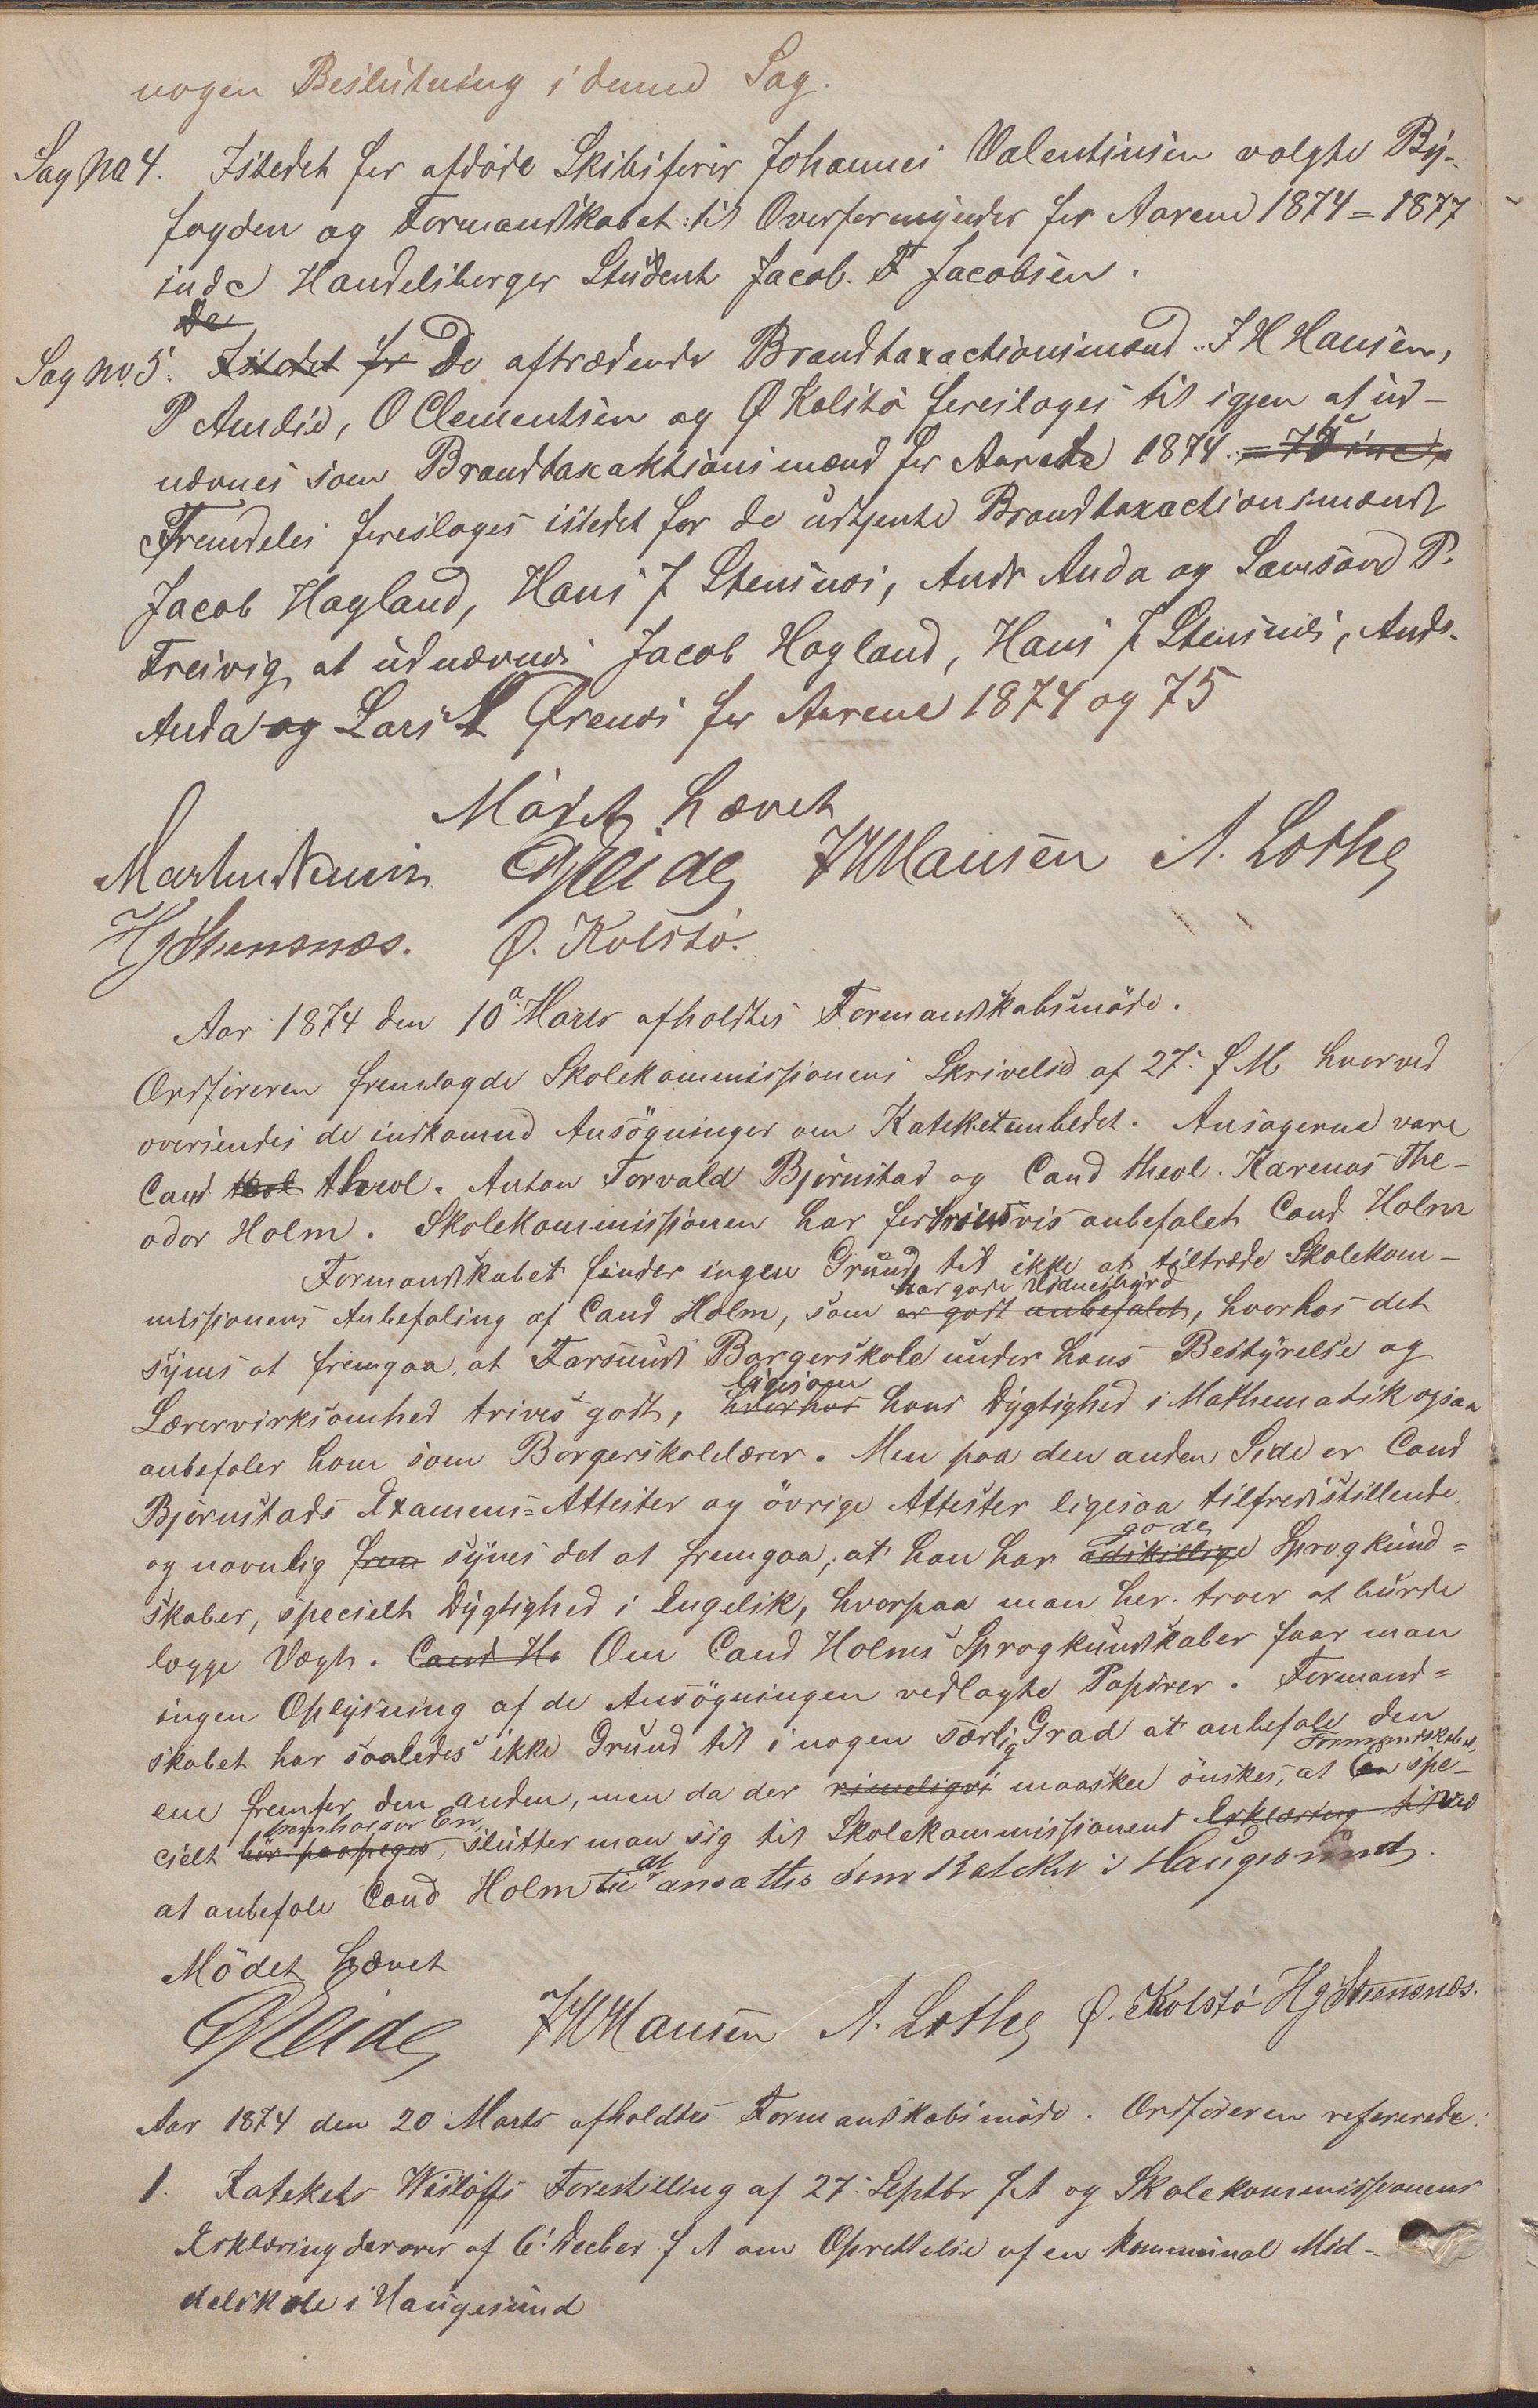 nogen Beslutning i denne Sag.
Sag No 4. Istedet for afdøde Skibsfører Johannes Valentinsen valgte By-
fogden og Formandskabet til Overformynder for Aarene 1874 = 1877
incl Handelsborger Student Jacob. F Jacobsen.
De
Sag No. 5. Istedet for De aftrædende Brandtaxactionsmænd J H Hansen,
P Amdie, O Clementsen og Ø Kolstø foreslages til igjen at ud-
nævnes som Brandtaxaktionsmænd for Aaret 1874
Fremdeles foreslages istedet for de udtjente Brandtaxactionsmænd
Jacob Hagland, Hans J Stensnæs, Andr Anda og Samson P.
Treivig at udnævnes Jacob Hagland, Hans J Stensnæs, Ands.
Anda og Lars L Ørenæs for Aarene 1874 og 75
Mødet hævet
Martin Nævin Eide JHHansen A. Lothe
HJStensnæs. Ø. Kolstø.
Aar 1874 den 10de Marts afholdtes Formandskabsmöde.
Ordføreren fremlagde Skolekommissionens Skrivelse af 27. f M hvorved
oversendes de indkomne Ansögninger om Kateketembedet. Ansøgerne vare
Cand theol theol. Anton Torvald Bjørnstad og Cand theol. Karenus The-
odor Holm. Skolekommissionen har fortrinsvis anbefalet Cand Holm
Formandskabet finder ingen Grund til ikke at tiltræde Skolekom-
har gode Vidnesbyrd
missionens Anbefaling af Cand Holm, som er godt anbefalet, hvorhos det
synes at fremgaa, at Farsunds Borgerskole under hans Bestyrelse og
ligesom
Lærervirksomhed trives godt, hvorhos hans Dygtighed i Mathematik ogsaa
anbefaler ham som Borgerskolelærer. Men paa den anden Side er Cand
Bjørnstads Examens=Attester og övrige Attester ligesaa tilfredsstillende,
gode
og navnlig frem synes det at fremgaa, at han har adskillige Sprogkund=
skaber, specielt Dygtighed i Engelsk, hvorpaa man her troer at burde
lægge Vægt. Cand Ho Om Cand Holms Sprogkundskaber faar man
ingen Oplysning af de Ansögningen vedlagte Papirer. Formand=
skabet har saaledes ikke Grund til i nogen særlig Grad at anbefale den
Formandskabet
ene fremfor den anden, men da der rimeligvis maaskee önskes, at En spe-
fremhæver En
cielt bör paapeges, slutter man sig til Skolekommissionens Erklæring ved
at
at anbefale Cand Holm til ansættes som Kateket i Haugesund.
Mödet hævet
Eide JHHansen A. Lothe Ø. Kolstø HJStensnæs.
Aar 1874 den 20 Marts afholdtes Formandskabsmöde. Ordføreren refererede:
1. Katekets Wisløffs Forestilling af 27. Septbr f A og Skolekommissionens
Erklæring derover af 6. Decber f A om Oprettelse af en kommunal Mid-
delskole i Haugesund